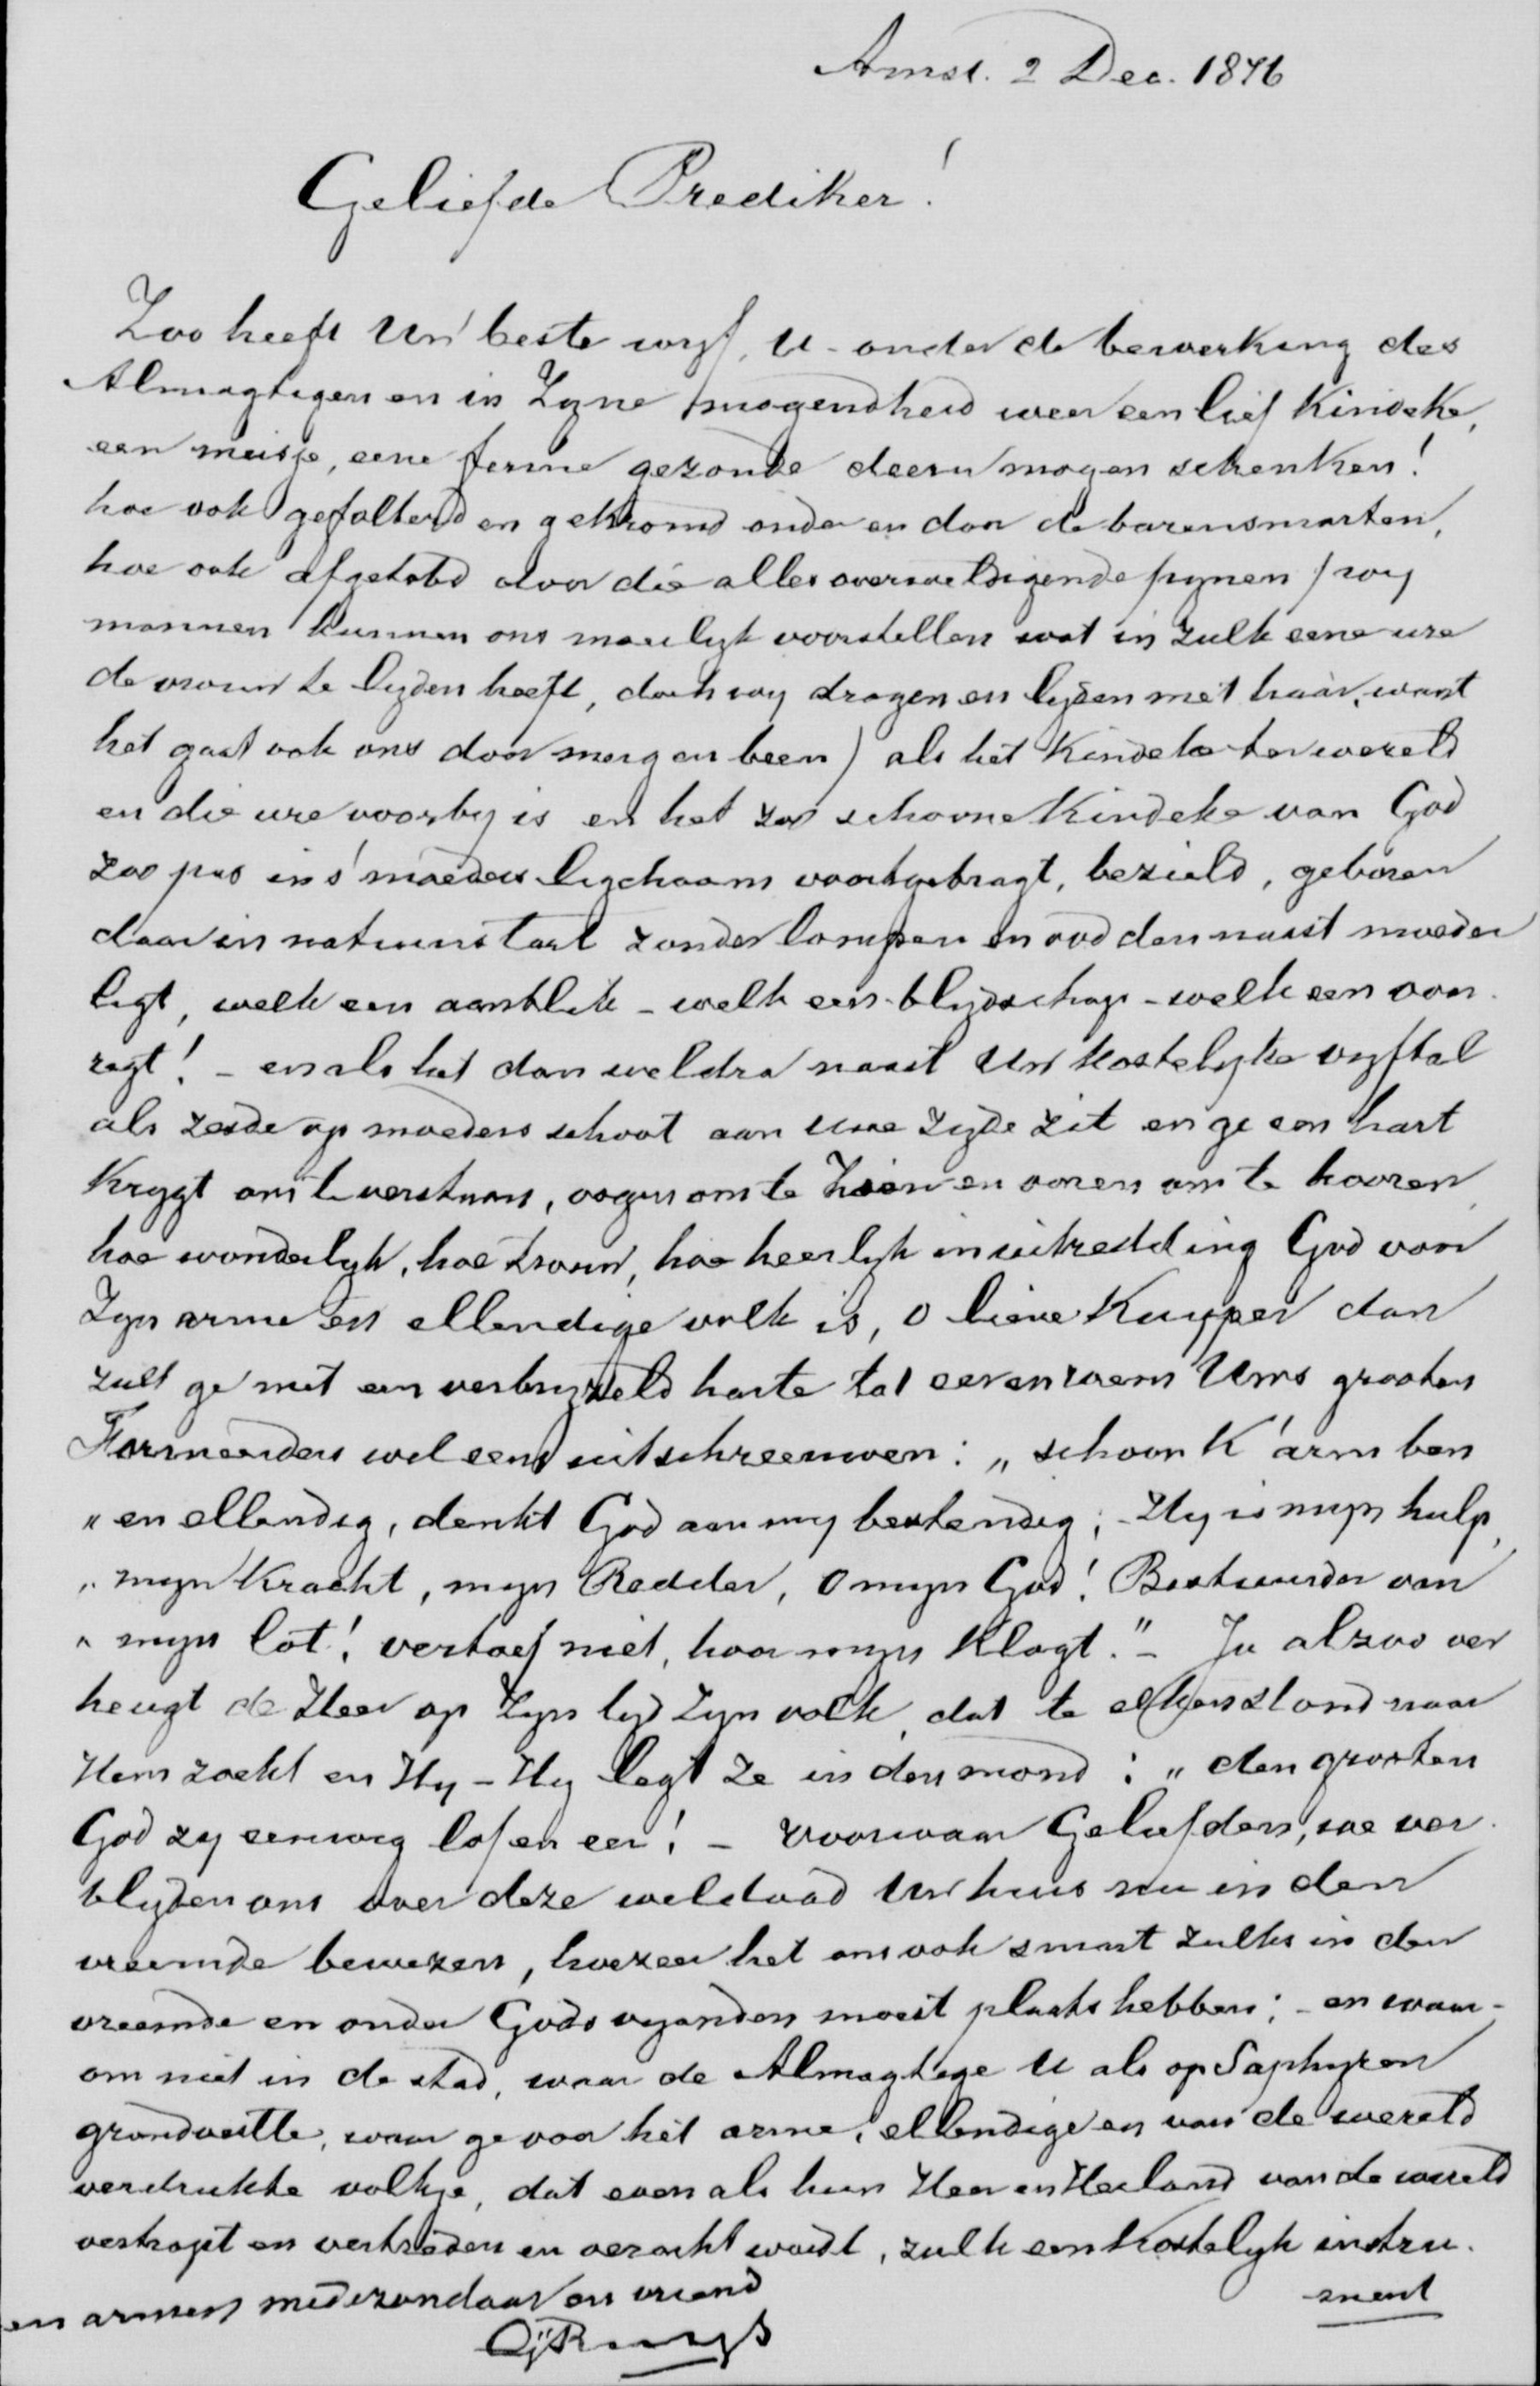 Amst. 2 Dec. 1876
Geliefde Prediker!
Zoo heeft Uw beste wyf, U - onder de bewerking des
Almagtigen en in Zyne mogendheid weer een lief Kindeke,
een meisje, eene ferme gezonde deern mogen schenken!
hoe ook gefolterd en gekromd onder en door de barensmarten,
hoe ook afgetobd door die alles overweldigende pynen (wy
mannen kunnen ons moeilyk voorstellen wat in zulk eene ure
de vrouw te lyden heeft, doch wy dragen en lyden met haar, want
het gaat ook ons door merg en been) als het Kindeke ter wereld
en die ure voorby is en het zoo schoone Kindeke van God
zoo pas in s'moeders ligchaam voortgebragt, bezield, geboren
daar in natuurstaat zonder lompen en vodden naast moeder
ligt, welk een aanblik - welk een blydschap - welk een voor-
regt! - en als het dan weldra naast Uw kostelyke vyftal
als zesde op moeders schoot aan uwe zyde zit en ge een hart
Krygt om te verstaan, oogen om te zien en ooren om te hooren
hoe wonderlyk, hoe trouw, hoe heerlyk in uitredding God voor
Zyn arme en ellendige volk is, o lieve Kuyper dan
zult ge met een verbryzeld harte tot eer en roem Uws grooten
Formeerders wel eens uitschreeuwen: „schoon K'arm ben
„en ellendig, denkt God aan my bestendig; - Hy is myn hulp,
„myn Kracht, myn Redder, O myn God! Bestuurder van
„myn lot! vertoef niet, hoor myn Klagt." - Ja alzoo ver
heugt de Heer op Zyn tyd Zyn volk, dat te elken stond naar
Hem zoekt en Hy - Hy legt ze in den mond: „den grooten
God zy eeuwig lof en eer! - Voorwaar Geliefden, we ver-
blyden ons over deze weldaad Uw huis nu in den
vreemde bewezen, hoezeer het ons ook smart zulks in den
vreemde en onder Gods vyanden moest plaats hebben; - en waar-
om niet in de stad, waar de Almagtige U als op Saphyren
grondvestte, waar ge voor het arme, ellendige en van de wereld
verdrukte volkje, dat even als hun Heer en Heiland van de wereld
vertrapt en vertreden en veracht wordt, zulk een Kostelyk instru-
ment
en armen medezondaar en vriend